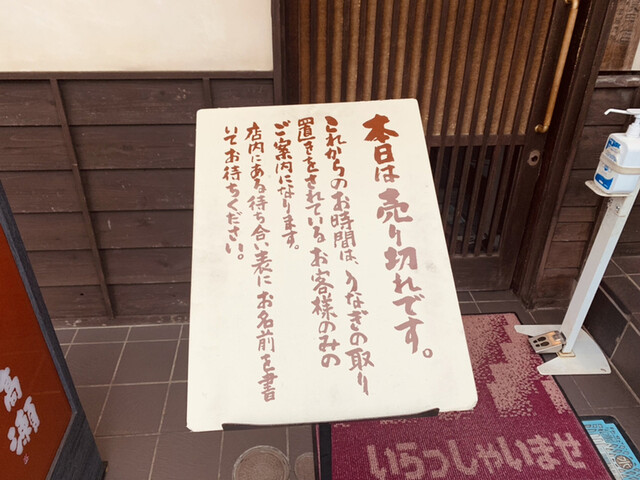 本日は売り切れです。
これからのお時間は、うなぎの取り
置きをされているお客様のみの
ご案内になります。
店内にある待ち合い表にお名前を書
いてお待ちください。
高瀬
いらっしゃいませ